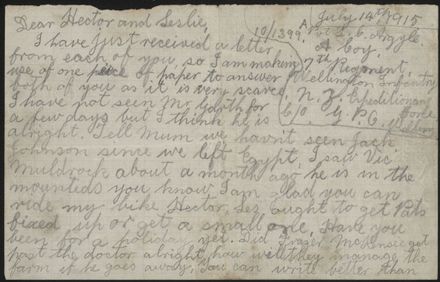 July 14th 1915
Dear Hector and Leslie,
10/1399, A, Pte L. C. Argyle
I have just received a letter
A Coy
from each of you, so I am making
7th Regiment,
use of one piece of paper to answer
Wellington Infantry
both of you as it is very scarce.
N. Z. Expeditionary
I have not seen Mr. for
Force
a few days but I think he is
C/o G. P. O.
alright. Tell Mum we havn't seen Jack
Johnson since we left Egypt. I saw Vic
Muldrock about a month ago he is in the
mounteds you know. I am glad you can
ride my bike Hector, Les ought to get Pat's
fixed up or get a small one. Have you
been for a holiday yet. Did Fraser McKenzie get
past the doctor alright, how will they manage the
farm if he goes away. You can write better than